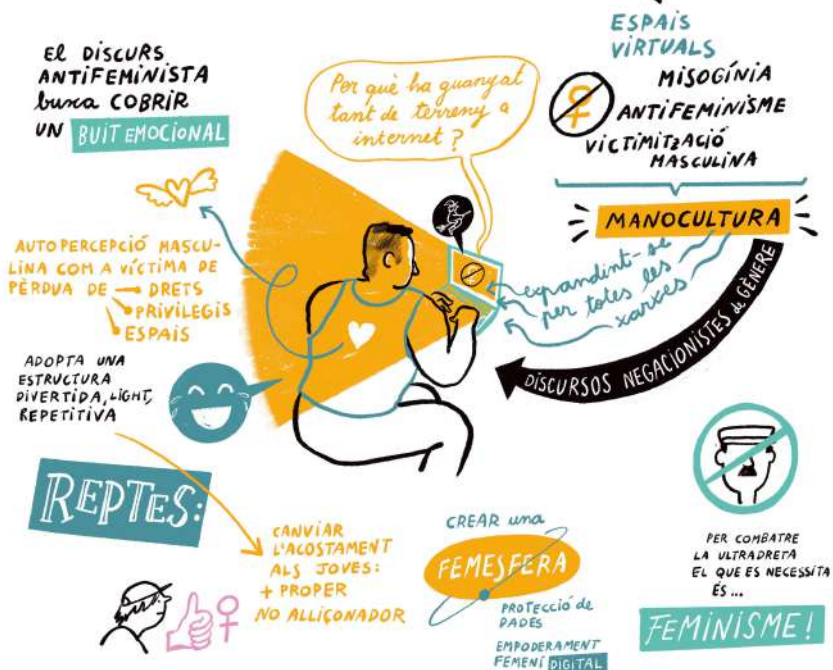 El DISCURS
ANTIFEMINISTA
busca COBRIR
UN BUIT EMOCIONAL
Per què ha guanyat
tant de terreny a
internet?
ESPAIS
VIRTUALS
MISOGÍNIA
ANTIFEMINISME
VICTIMITZACIÓ
MASCULINA
MANOCULTURA
expandint-se
per totes les
xarxes
DISCURSOS NEGACIONISTES de GÈNERE
AUTOPERCEPCIÓ MASCU-
LINA COM A VÍCTIMA DE
PÈRDUA DE DRETS
PRIVILEGIS
ESPAIS
ADOPTA UNA
ESTRUCTURA
DIVERTIDA, LIGHT,
REPETITIVA
REPTES:
CANVIAR
L'ACOSTAMENT
ALS JOVES:
+ PROPER
NO ALLIÇONADOR
CREAR una
FEMESFERA
PROTECCIÓ de
DADES
EMPODERAMENT
FEMENÍ DIGITAL
PER COMBATRE
LA ULTRADRETA
EL QUE ES NECESSITA
ÉS...
FEMINISME!